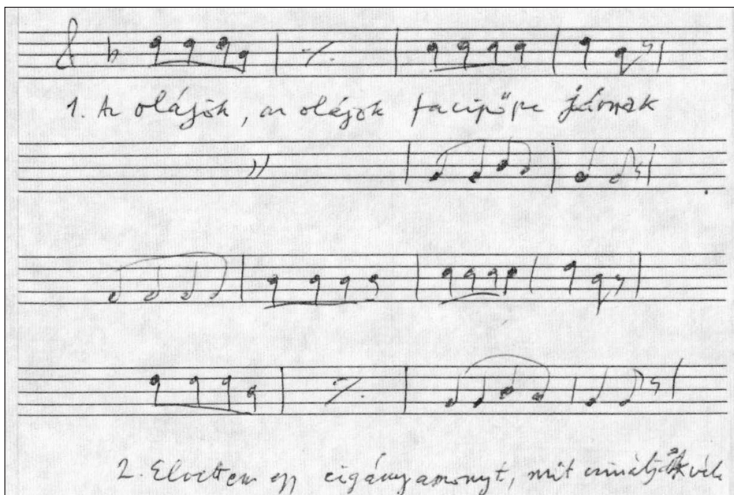 1. Az olájok, az olájok facipőpe járnak
2. Elvettem egy cigányasszonyt, mit csináljak véle